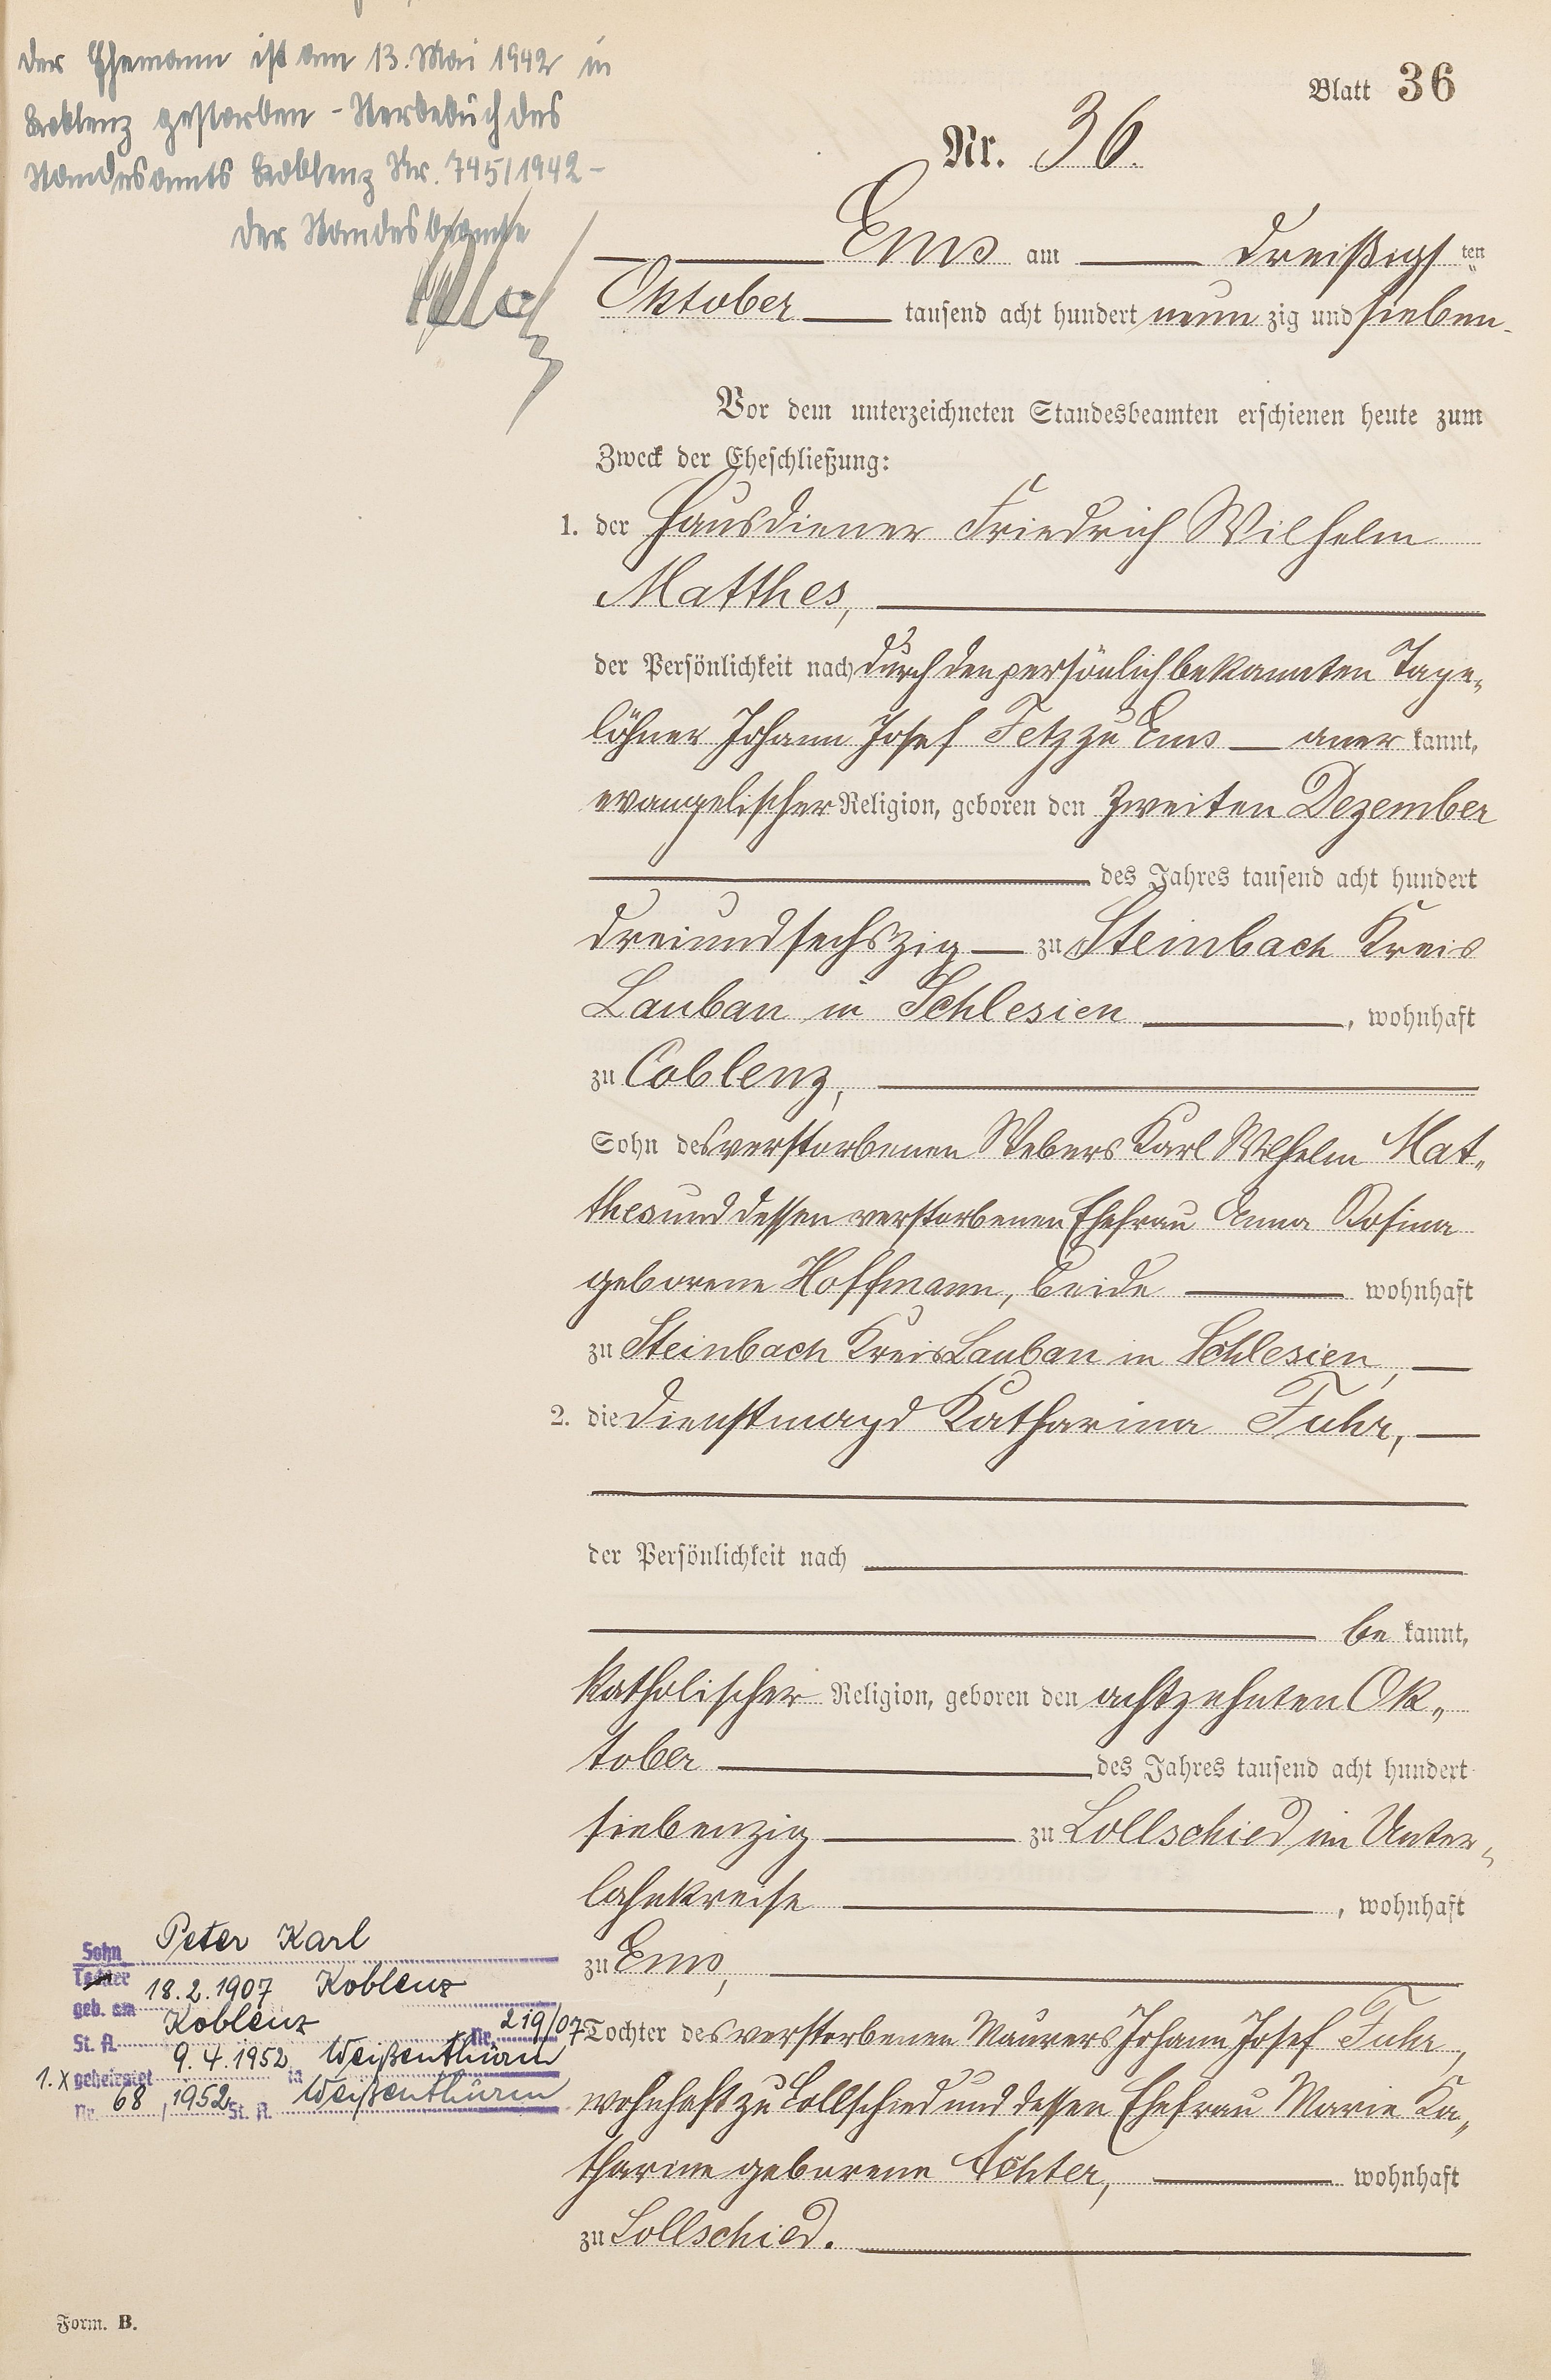 der Ehemann ist am 13. Mai 1942 in
Koblenz gestorben - Sterbebuch des
Standesamts Koblenz Nr. 745/1942 -
der Standesbeamte
Blatt 36
Nr. 36.
Ems am dreißigsten
Oktober tausend acht hundert neunzig und sieben
Vor dem unterzeichneten Standesbeamten erschienen heute zum
Zweck der Eheschließung:
1. der Hausdiener Friedrich Wilhelm
Matthes,
der Persönlichkeit nach durch den persönlich bekannten Tage-
löhner Johann Josef Fetz zu Ems anerkannt,
evangelischer Religion, geboren den zweiten Dezember
des Jahres tausend acht hundert
dreiundsechszig zu Steinbach Kreis
Lauban in Schlesien, wohnhaft
zu Coblenz,
Sohn des verstorbenen Webers Karl Wilhelm Mat-
thes und dessen verstorbenen Ehefrau Anna Rosina
geborene Hoffmann, beide wohnhaft
zu Steinbach Kreis Lauban in Schlesien,
2. die Dienstmagd Katharina Fuhr,
der Persönlichkeit nach
bekannt,
katholischer Religion, geboren den achtzehnten Ok-
tober des Jahres tausend acht hundert
siebenzig zu Lollschied im Unter-
lahnkreise, wohnhaft
zu Ems,
Tochter des verstorbenen Maurers Johann Josef Fuhr,
wohnhaft zu Lollschied und dessen Ehefrau Marie Ka-
tharine geborene Achter, wohnhaft
zu Lollschied.
Sohn Peter Karl
Tochter
geb. am 18.2.1907 Koblenz
St. A. Koblenz Nr. 219/07
1. x geheiratet 9.4.1952 in Weißenthurm
Nr. 68 / 1952 St. A. Weißenthurm
Form. B.